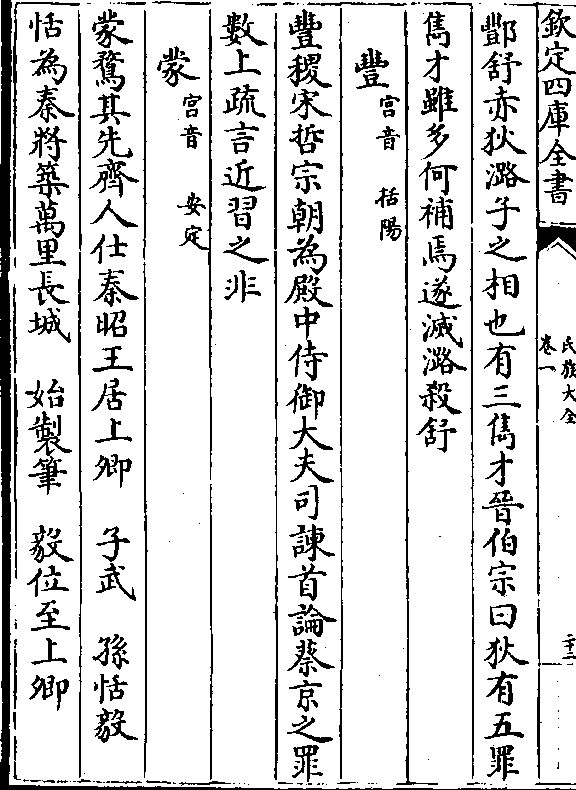 欽定四庫全書
氏族大全
卷一
二十二
酆舒赤狄潞子之相也有三雋才晉伯宗曰狄有五罪
雋才雖多何補焉遂滅潞殺舒
豐 宫音 括陽
豐稷宋哲宗朝為殿中侍御大夫司諫首論蔡京之罪
數上疏言近習之非
蒙 宫音 安定
蒙驁其先齊人仕秦昭王居上卿 子武 孫恬毅
恬為秦將築萬里長城 始製筆 毅位至上卿